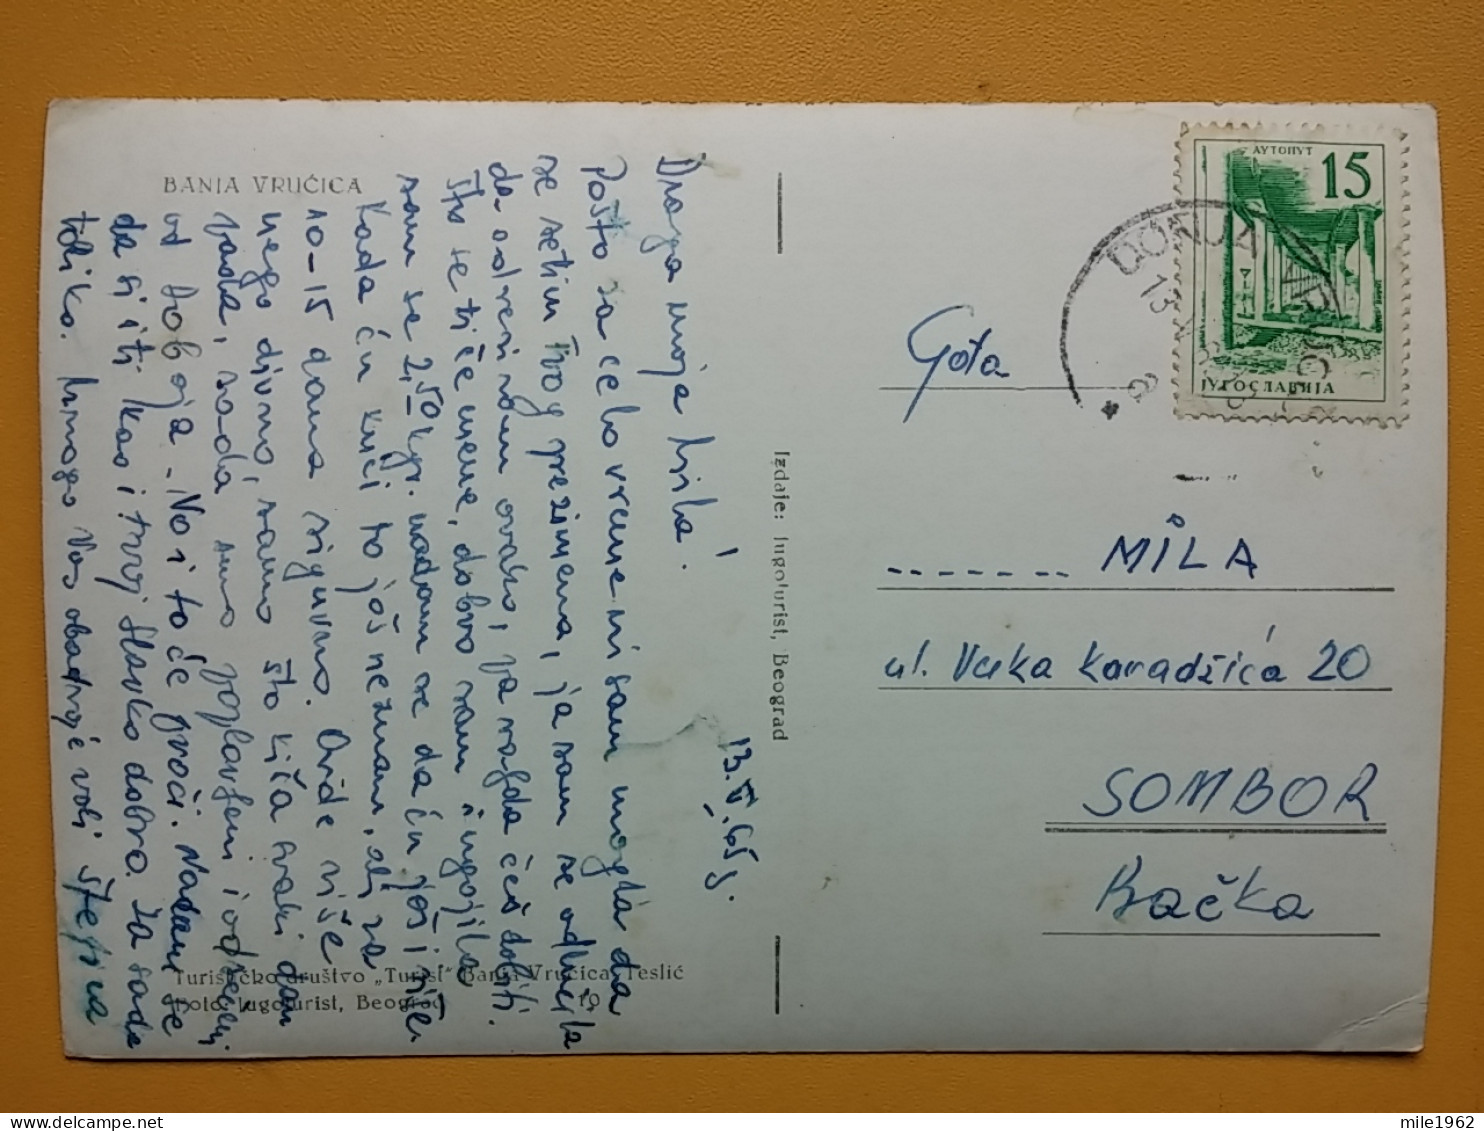 BANJA VRUĆICA
Draga moja Mila!
Pošto za celo vreme nisam mogla da
se setim tvog prezimena, ja sam se odlučila
da adresiram ovako, pa valjda ćeš dobiti.
Što se tiče mene, dobro sam. Ugojila
sam se 2,50 kgr. nadam se da ću još i više
Kada ću kući to još ne znam, ali za
10-15 dana sigurno. Ovde više
nego divno, samo što kiša svaki dan
pada, sada smo poplavljeni i odsečeni
od Doboja. No i to će proći. Nadam se
da si i ti kao i tvoj Slavko dobro. Za sada
toliko. Mnogo Vas obadvoje voli Stefica
13.V.65.
Turističko društvo „Turist" Banja Vrućica, Teslić
Foto: Jugoturist, Beograd 19
Izdaje: Jugoturist, Beograd
АУТОПУТ
15
ЈУГОСЛАВИЈА
DONJA
13
Gđa
------- MILA
ul. Vuka Karadžića 20
SOMBOR
Bačka
mile1962